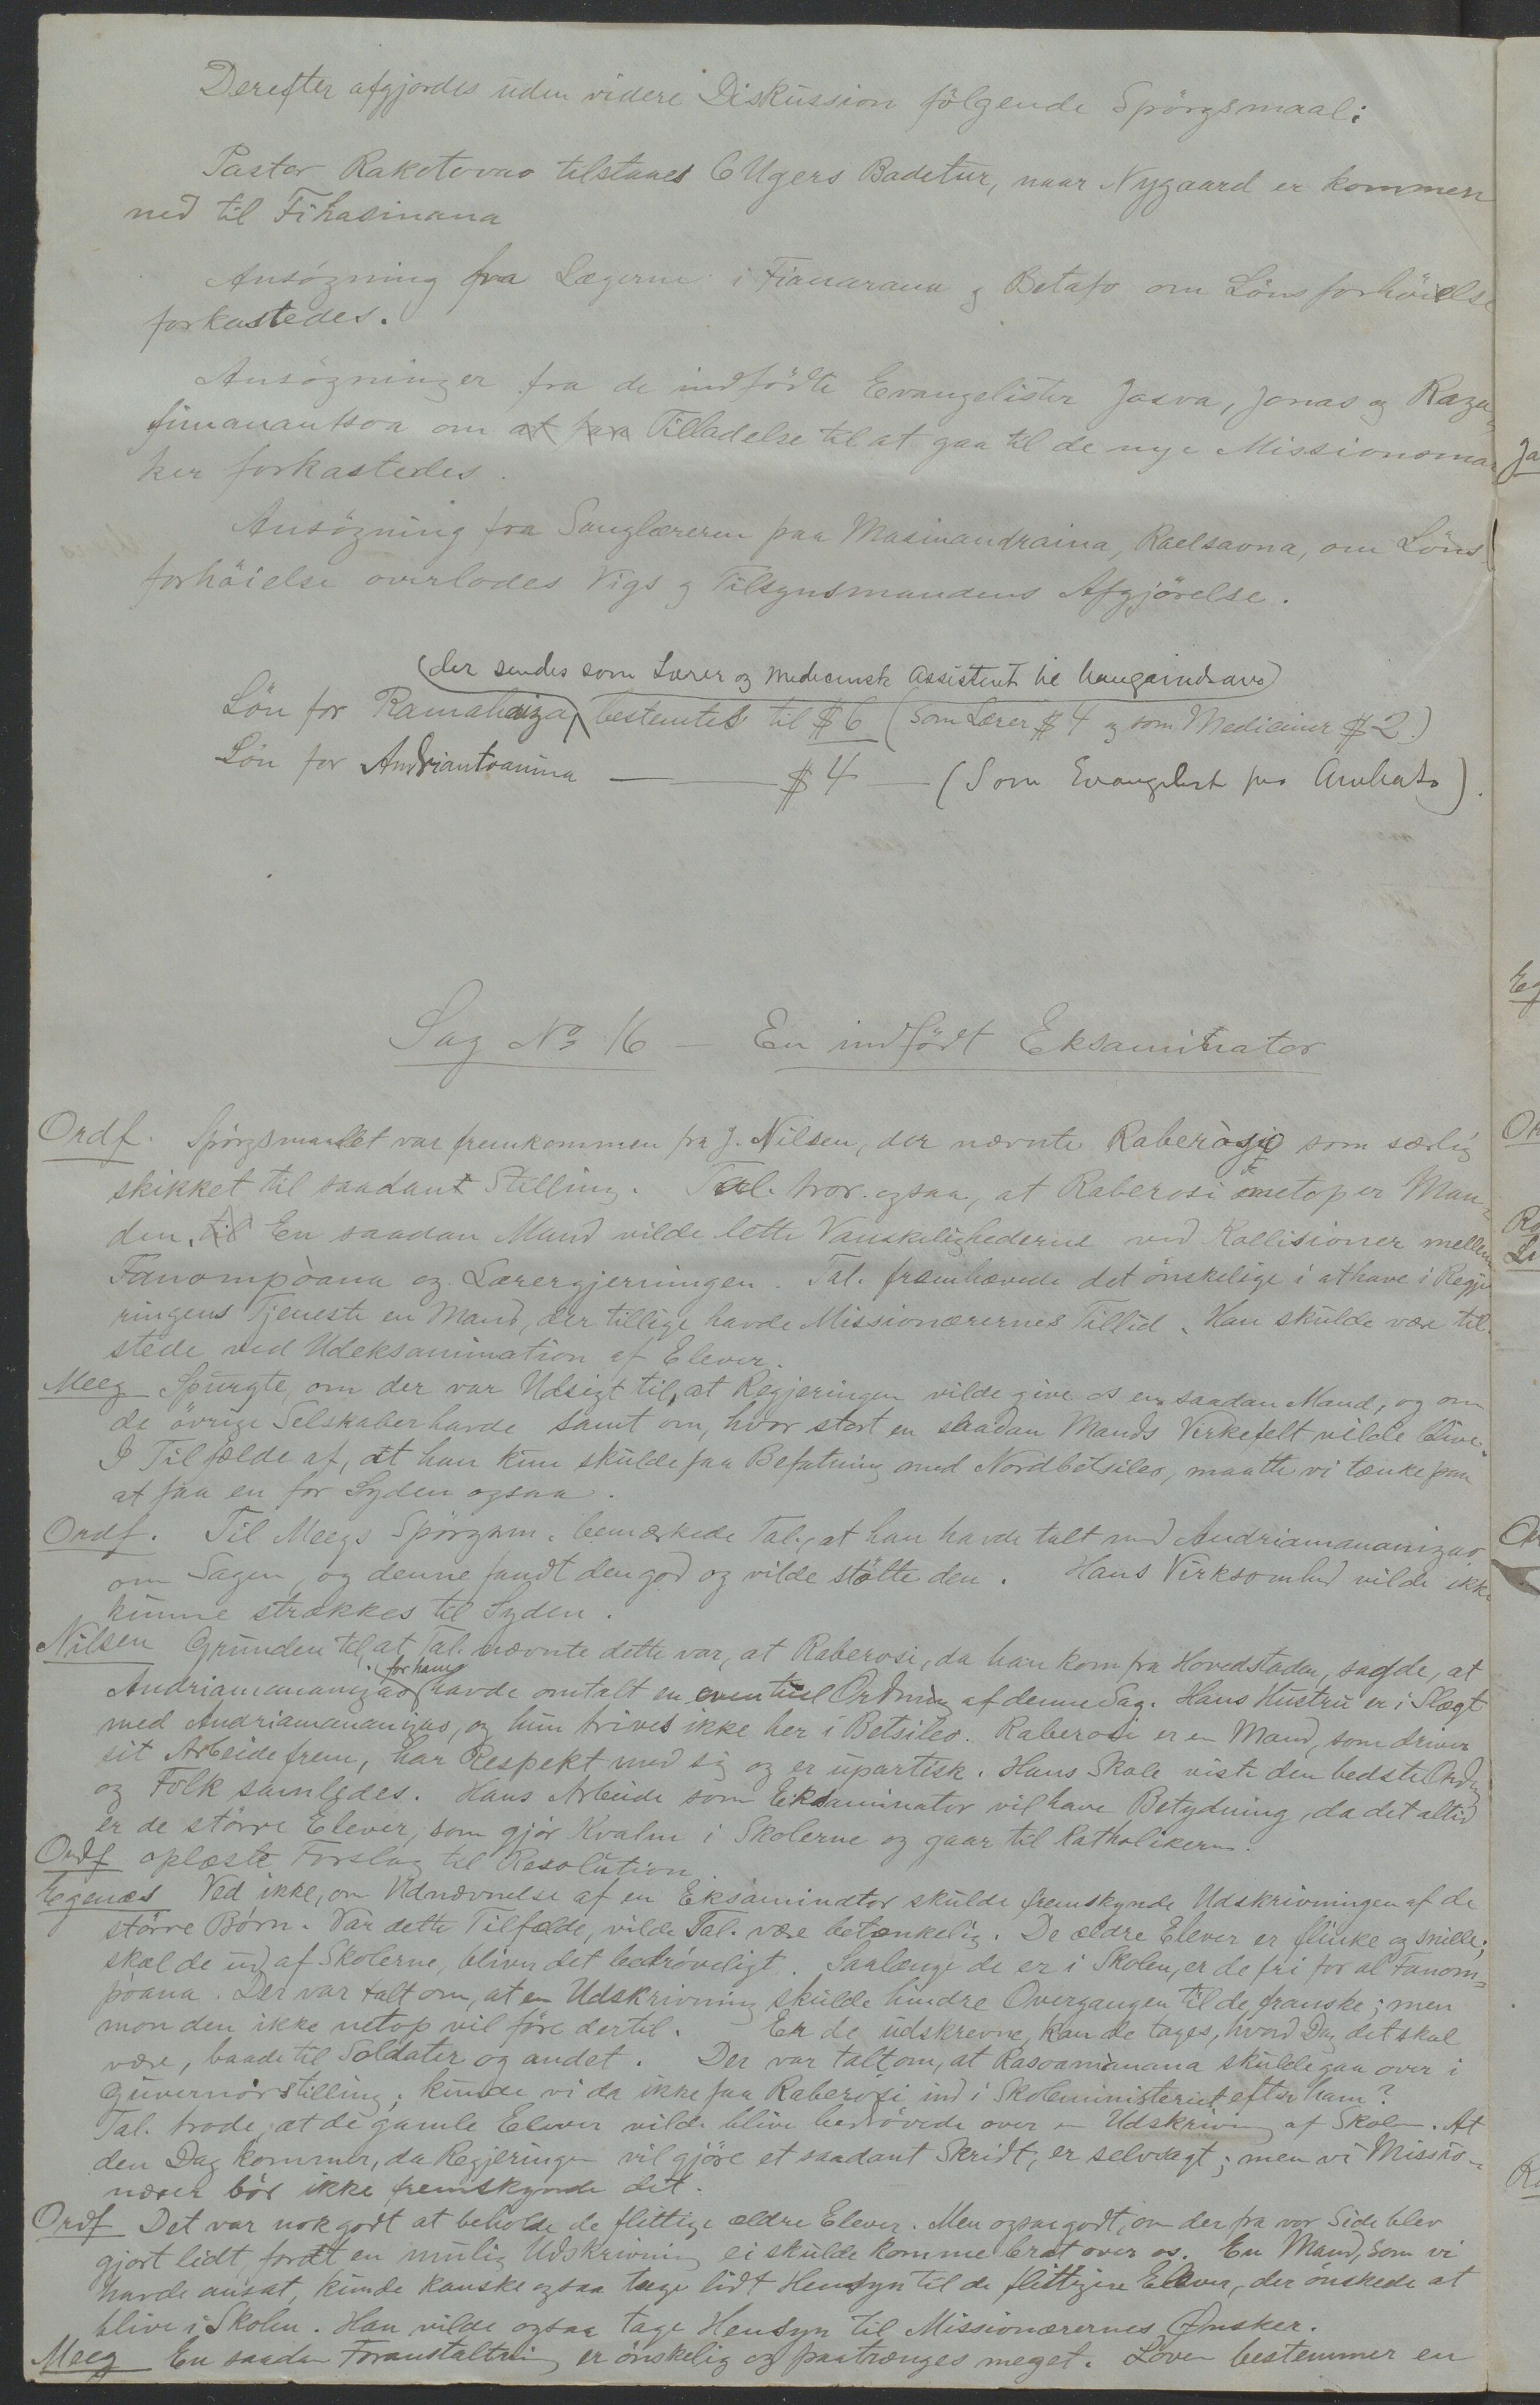 Derefter afgjordes uden videre Diskussion følgende Spørgsmaal:
Pastor Rakotovao tilstaaes 6 Ugers Badetur, naar Nygaard er kommen
ned til Fihasinana
Ansøgning fra Lægerne i Fianarana & Betafo om Lønsforhøielse
forkastedes.
Ansøgninger fra de indfødte Evangelister Josva, Jonas og Raza-
fimanantsoa om at faa Tilladelse til at gaa til de nye Missionsmar
ker forkastedes.
Ansøgning fra Sanglæreren paa Masinandraina, Raelsaona, om Løns-
forhøielse overlodes Vigs & Tilsynsmandens Afgjørelse.
(der sendes som Lærer og medicinsk Assistent til
Løn for Ramahaiza, bestemtes til $6 (Som Lærer $4 og som Mediciner $2.)
Løn for Andriantoanina — $4 — (Som Evangelist paa Ambato).
Sag No 16 — En indfødt Eksaminator
Ordf. Spørgsmaalet var fremkommen fra J. Nilsen, der nævnte Raberosi som særlig
skikket til saadant Stilling. Tal. tror ogsaa, at Raberosi netop er Man-
den. til En saadan Mand vilde lette Vanskelighederne ved Kollisioner mellem
Fanompòana og Lærergjerningen. Tal. fremhævede det ønskelige i at have i Regje
ringens Tjeneste en Mand, der tillige havde Missionærernes Tillid. Han skulde være til-
stede ved Udeksamination af Elever.
Meeg Spurgte, om der var Udsigt til, at Regjeringen vilde give os en saadan Mand, og om
de øvrige Selskaber havde samt om, hvor stort en saadan Mands Virkefelt vilde blive.
I Tilfælde af, at han kun skulde faa Befatning med Nordbetsileo, maatte vi tænke paa
at faa en for Syden ogsaa.
Ordf. Til Meegs Spørgsm. bemærkede Tal., at han havde talt med Andriamananizao
om Sagen, og denne fandt den god og vilde støtte den. Hans Virksomhed vilde ikke
kunne strækkes til Syden.
Nilsen Grunden til, at Tal. nævnte dette var, at Raberosi, da han kom fra Hovedstaden, sagde, at
for ham
Andriamananizao havde omtalt en eventuel Ordning af denne Sag. Hans Hustru er i Slægt
med Andriamananizao, og hun trives ikke her i Betsileo. Raberosi er en Mand, som driver
sit Arbeide frem, har Respekt med sig og er upartisk. Hans Skole viste den bedste Orden
og Folk samledes. Hans Arbeide som Eksaminator vil have Betydning, da det altid
er de større Elever, som gjør Kvalm i Skolerne og gaar til Katholikerne.
Ordf oplæste Forslag til Resolution.
Egenæs Ved ikke, om Udnævnelse af en Eksaminator skulde fremskynde Udskrivningen af de
større Børn. Var dette Tilfælde, vilde Tal. være betænkelig. De ældre Elever er flinke og snille;
skal de ud af Skolerne, bliver det bedrøveligt. Saalænge de er i Skolen, er de fri for al Fanom-
pòana. Der var talt om, at en Udskrivning skulde hindre Overgangen til de franske; men
mon den ikke netop vil føre dertil. Er de udskrevne, kan de tages, hvad Dag det skal
være, baade til Soldater og andet. Der var talt om, at Rasoamànana skulde gaa over i
Guvernørstilling; kunde vi da ikke faa Raberòsi ind i Skoleministeriet efter ham?
Tal. trode, at de gamle Elever vilde blive bedrøvede over en Udskrivning af Skolen. At
den Dag kommer, da Regjeringen vil gjøre et saadant Skridt, er selvsagt; men vi Missio-
nærer bør ikke fremskynde det.
Ordf Det var nok godt at beholde de flittige ældre Elever. Men ogsaa godt, om der fra vor Side blev
gjort lidt, fordt en mulig Udskrivning ei skulde komme brat over os. En Mand, som vi
havde ansat, kunde kanske ogsaa tage lidt Hensyn til de flittigere Elever, der ønskede at
blive i Skolen. Han vilde ogsaa tage Hensyn til Missionærernes Ønsker.
Meeg En saadan Foranstaltning er ønskelig og paatrænges meget. Loven bestemmer en